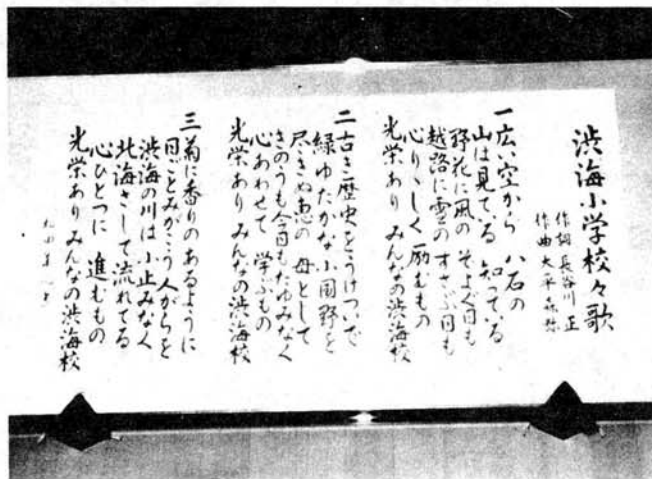 渋海小学校々歌
作詞 長谷川 正
作曲 大平森弥
一 広い空から 八石の
山は見ている 知っている
野花に風の そよぐ日も
越路に雪の すさぶ日も
心りゝしく 励むもの
光栄あり みんなの渋海校
二 古き歴史をうけついで
緑ゆたかな 小国野を
尽きぬ恵の 母として
きのうも今日もたゆみなく
心あわせて 学ぶもの
光栄あり みんなの渋海校
三 菊に香りのあるように
日ごとみがこう 人がらを
渋海の川は 小止みなく
北海さして 流れてる
心ひとつに 進むもの
光栄あり みんなの渋海校